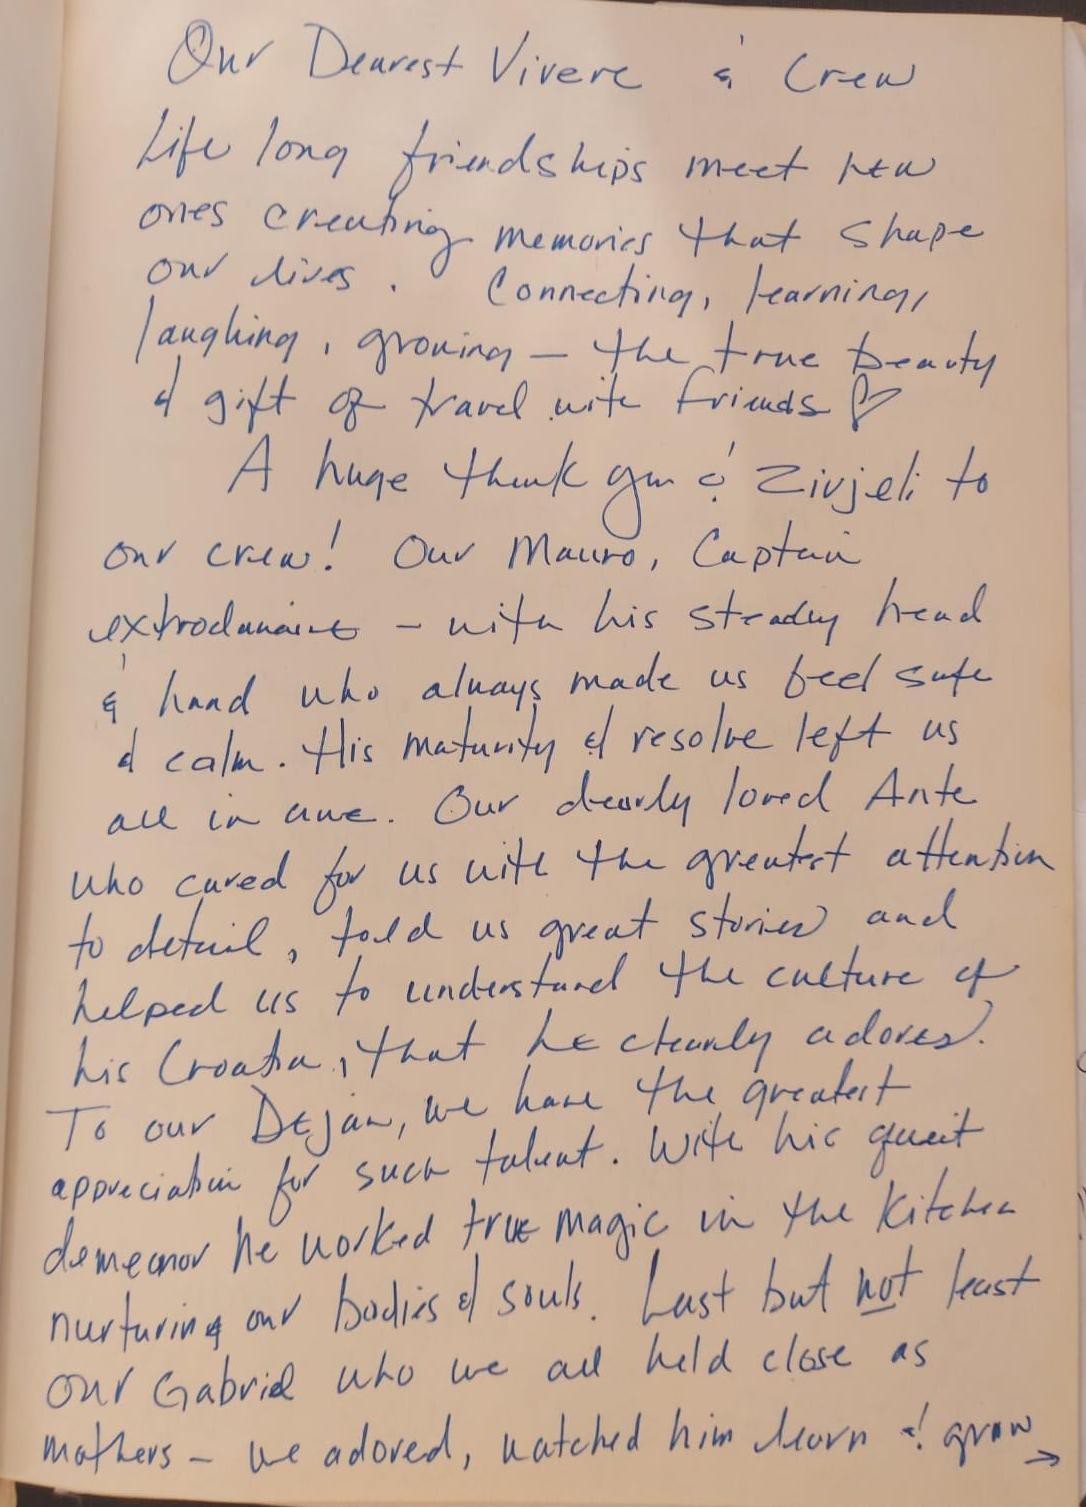 Our Dearest Vivere & Crew
Life long friendships meet new
ones creating memories that shape
our lives. Connecting, learning,
laughing, growing – the true beauty
& gift of travel with friends ♡
A huge thank you & Zivjeli to
our crew! Our Mauro, Captain
extrodanaire – with his steady head
& hand who always made us feel safe
& calm. His maturity & resolve left us
all in awe. Our dearly loved Ante
who cared for us with the greatest attention
to detail, told us great stories and
helped us to understand the culture of
his Croatia, that he clearly adores.
To our Dejan, we have the greatest
appreciation for such talent. With his queit
demeanor he worked true magic in the kitchen
nurturing our bodies & souls. Last but not least
our Gabriel who we all held close as
mothers – we adored, watched him learn & grow →